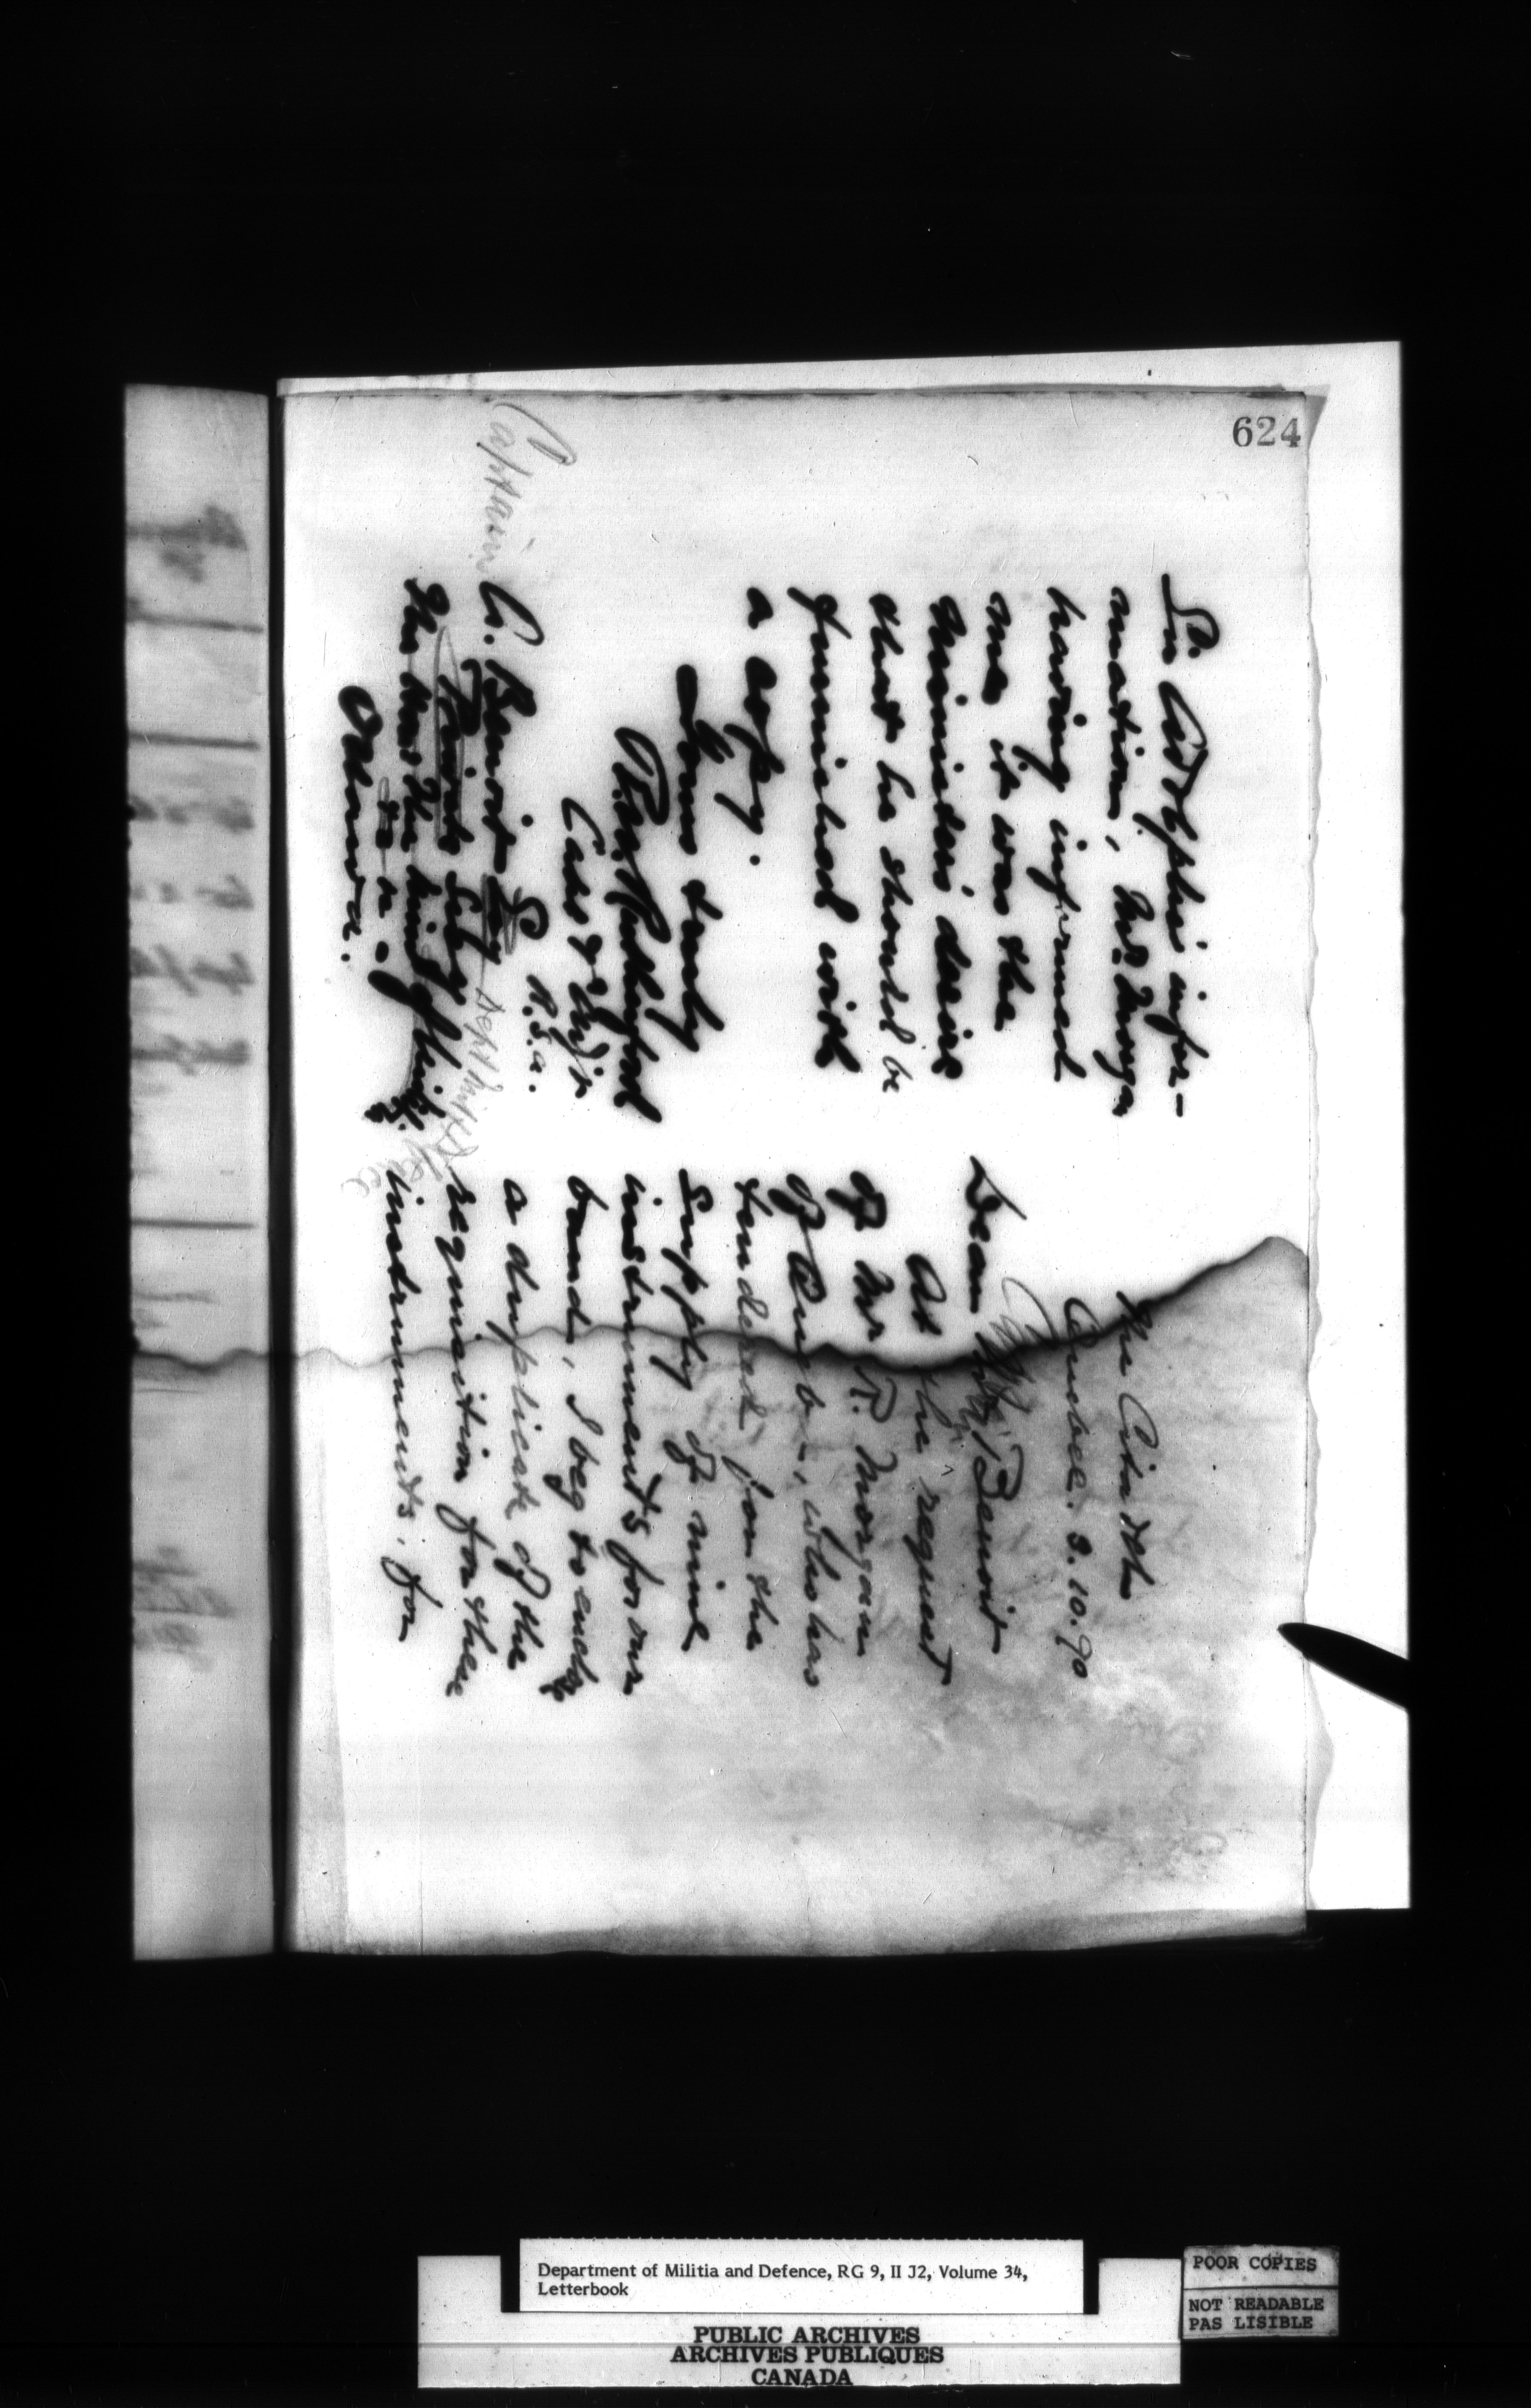 624
The Citadel
Quebec. 3.10.90
Dear Captn Benoit
At the request
of Mr. T. Morgan
of Quebec, who has
tendered for the
supply of nine
instruments for our
band, I beg to enclose
a duplicate of the
requisition for these
instruments. for
Sir Adolphe's infor-
mation, Mr. Morgan
having informed
me it was the
Minister's desire
that he should be
furnished with
a copy.
Yours truly
R.W. Rutherford
Capt & Adjt
R.S.a.
Captain C. Benoit Esq
Private Secy Dept Mil & Defence
The Hon. The Min. of Militia
Ottawa.
Department of Militia and Defence, RG 9, II J2, Volume 34,
Letterbook
PUBLIC ARCHIVES
ARCHIVES PUBLIQUES
CANADA
POOR COPIES
NOT READABLE
PAS LISIBLE